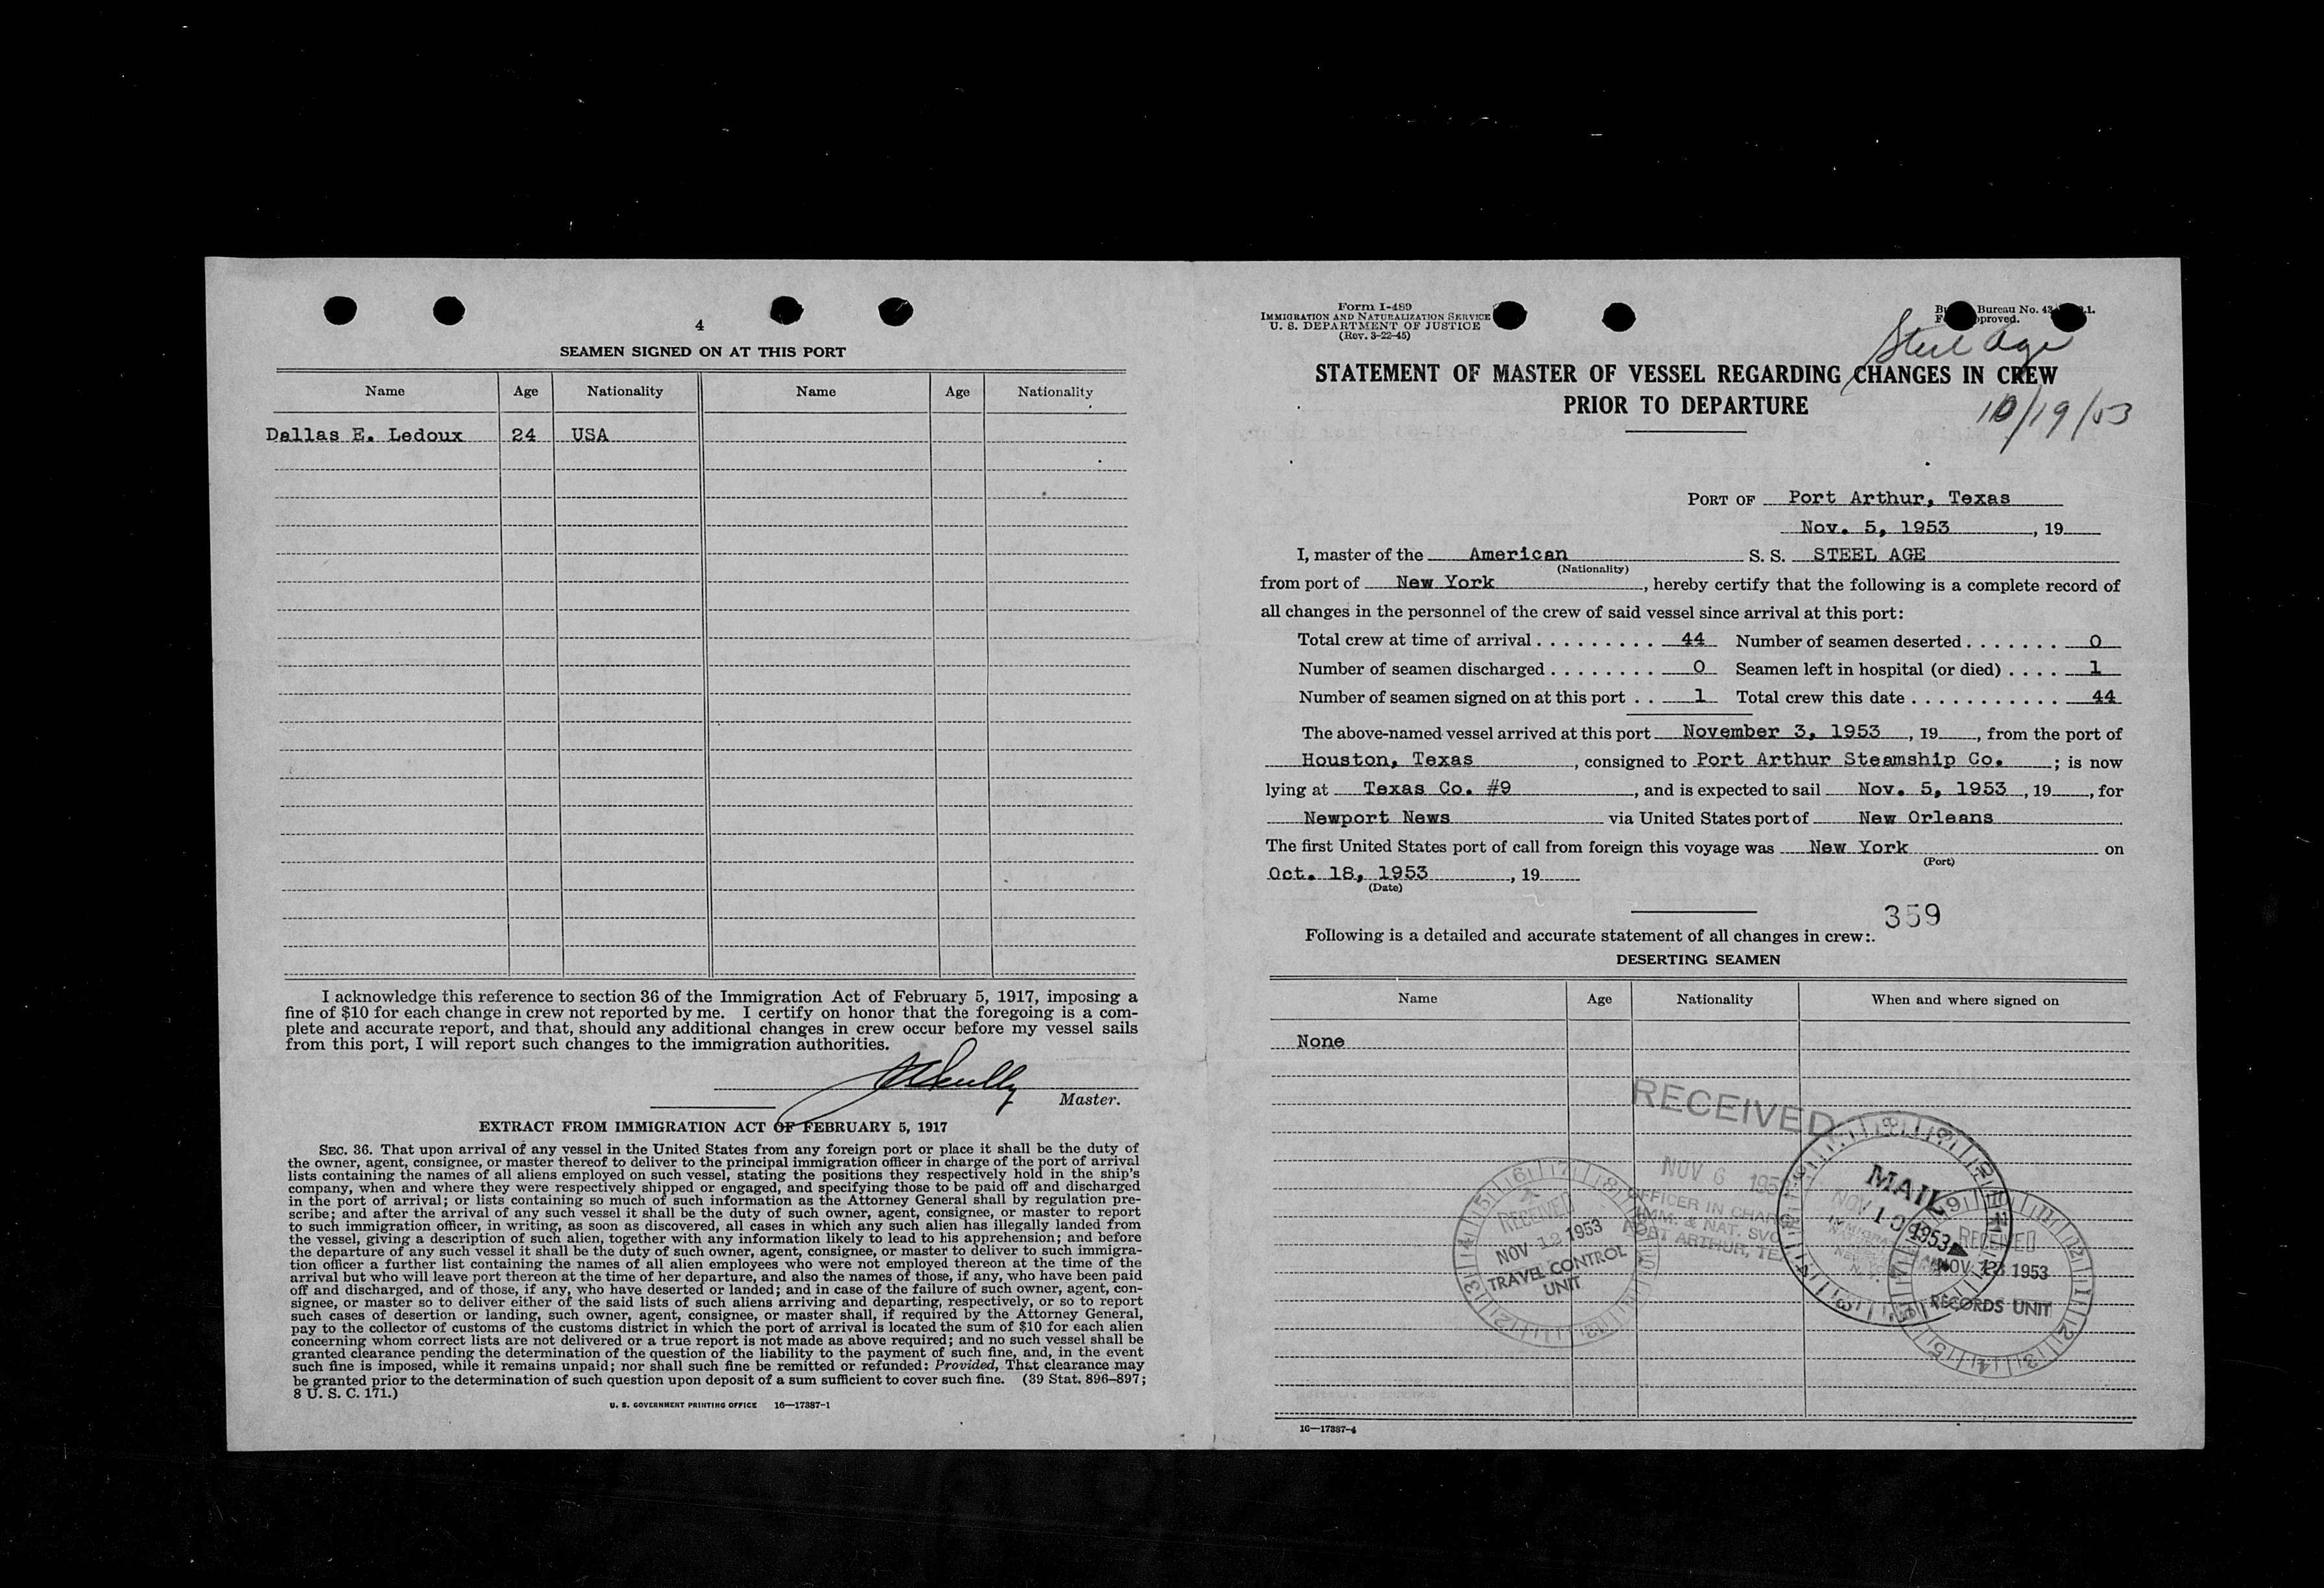 4
SEAMEN SIGNED ON AT THIS PORT
Name Age Nationality Name Age Nationality
Dallas E. Ledoux 24 USA
I acknowledge this reference to section 36 of the Immigration Act of February 5, 1917, imposing a
fine of $10 for each change in crew not reported by me. I certify on honor that the foregoing is a com-
plete and accurate report, and that, should any additional changes in crew occur before my vessel sails
from this port, I will report such changes to the immigration authorities.
Master.
EXTRACT FROM IMMIGRATION ACT OF FEBRUARY 5, 1917
SEC. 36. That upon arrival of any vessel in the United States from any foreign port or place it shall be the duty of
the owner, agent, consignee, or master thereof to deliver to the principal immigration officer in charge of the port of arrival
lists containing the names of all aliens employed on such vessel, stating the positions they respectively hold in the ship's
company, when and where they were respectively shipped or engaged, and specifying those to be paid off and discharged
in the port of arrival; or lists containing so much of such information as the Attorney General shall by regulation pre-
scribe; and after the arrival of any such vessel it shall be the duty of such owner, agent, consignee, or master to report
to such immigration officer, in writing, as soon as discovered, all cases in which any such alien has illegally landed from
the vessel, giving a description of such alien, together with any information likely to lead to his apprehension; and before
the departure of any such vessel it shall be the duty of such owner, agent, consignee, or master to deliver to such immigra-
tion officer a further list containing the names of all alien employees who were not employed thereon at the time of the
arrival but who will leave port thereon at the time of her departure, and also the names of those, if any, who have been paid
off and discharged, and of those, if any, who have deserted or landed; and in case of the failure of such owner, agent, con-
signee, or master so to deliver either of the said lists of such aliens arriving and departing, respectively, or so to report
such cases of desertion or landing, such owner, agent, consignee, or master shall, if required by the Attorney General,
pay to the collector of customs of the customs district in which the port of arrival is located the sum of $10 for each alien
concerning whom correct lists are not delivered or a true report is not made as above required; and no such vessel shall be
granted clearance pending the determination of the question of the liability to the payment of such fine, and, in the event
such fine is imposed, while it remains unpaid; nor shall such fine be remitted or refunded: Provided, That clearance may
be granted prior to the determination of such question upon deposit of a sum sufficient to cover such fine. (39 Stat. 896–897;
8 U. S. C. 171.)
U. S. GOVERNMENT PRINTING OFFICE 16—17387-1
Form I-489
IMMIGRATION AND NATURALIZATION SERVICE
U. S. DEPARTMENT OF JUSTICE
(Rev. 3-22-45)
Bureau No.
Steel Age
STATEMENT OF MASTER OF VESSEL REGARDING CHANGES IN CREW
PRIOR TO DEPARTURE
10/19/53
PORT OF Port Arthur, Texas
Nov. 5, 1953, 19
I, master of the American S. S. STEEL AGE
(Nationality)
from port of New York, hereby certify that the following is a complete record of
all changes in the personnel of the crew of said vessel since arrival at this port:
Total crew at time of arrival . . . . . . . . . . 44 Number of seamen deserted . . . . . . . 0
Number of seamen discharged . . . . . . . . . 0 Seamen left in hospital (or died) . . . . 1
Number of seamen signed on at this port . . 1 Total crew this date . . . . . . . . . . . . 44
The above-named vessel arrived at this port November 3, 1953, 19, from the port of
Houston, Texas, consigned to Port Arthur Steamship Co.; is now
lying at Texas Co. #9, and is expected to sail Nov. 5, 1953, 19, for
Newport News via United States port of New Orleans
The first United States port of call from foreign this voyage was New York on
(Port)
Oct. 18, 1953, 19
(Date)
359
Following is a detailed and accurate statement of all changes in crew:.
DESERTING SEAMEN
Name Age Nationality When and where signed on
None
RECEIVED
NOV 6 195
OFFICER IN CHARGE
IMM. & NAT. SVC
PORT ARTHUR, TEX
RECEIVED
NOV 12 1953
TRAVEL CONTROL
UNIT
MAIL
NOV 10 1953
RECEIVED
NOV 1953
RECORDS UNIT
16—17387-4